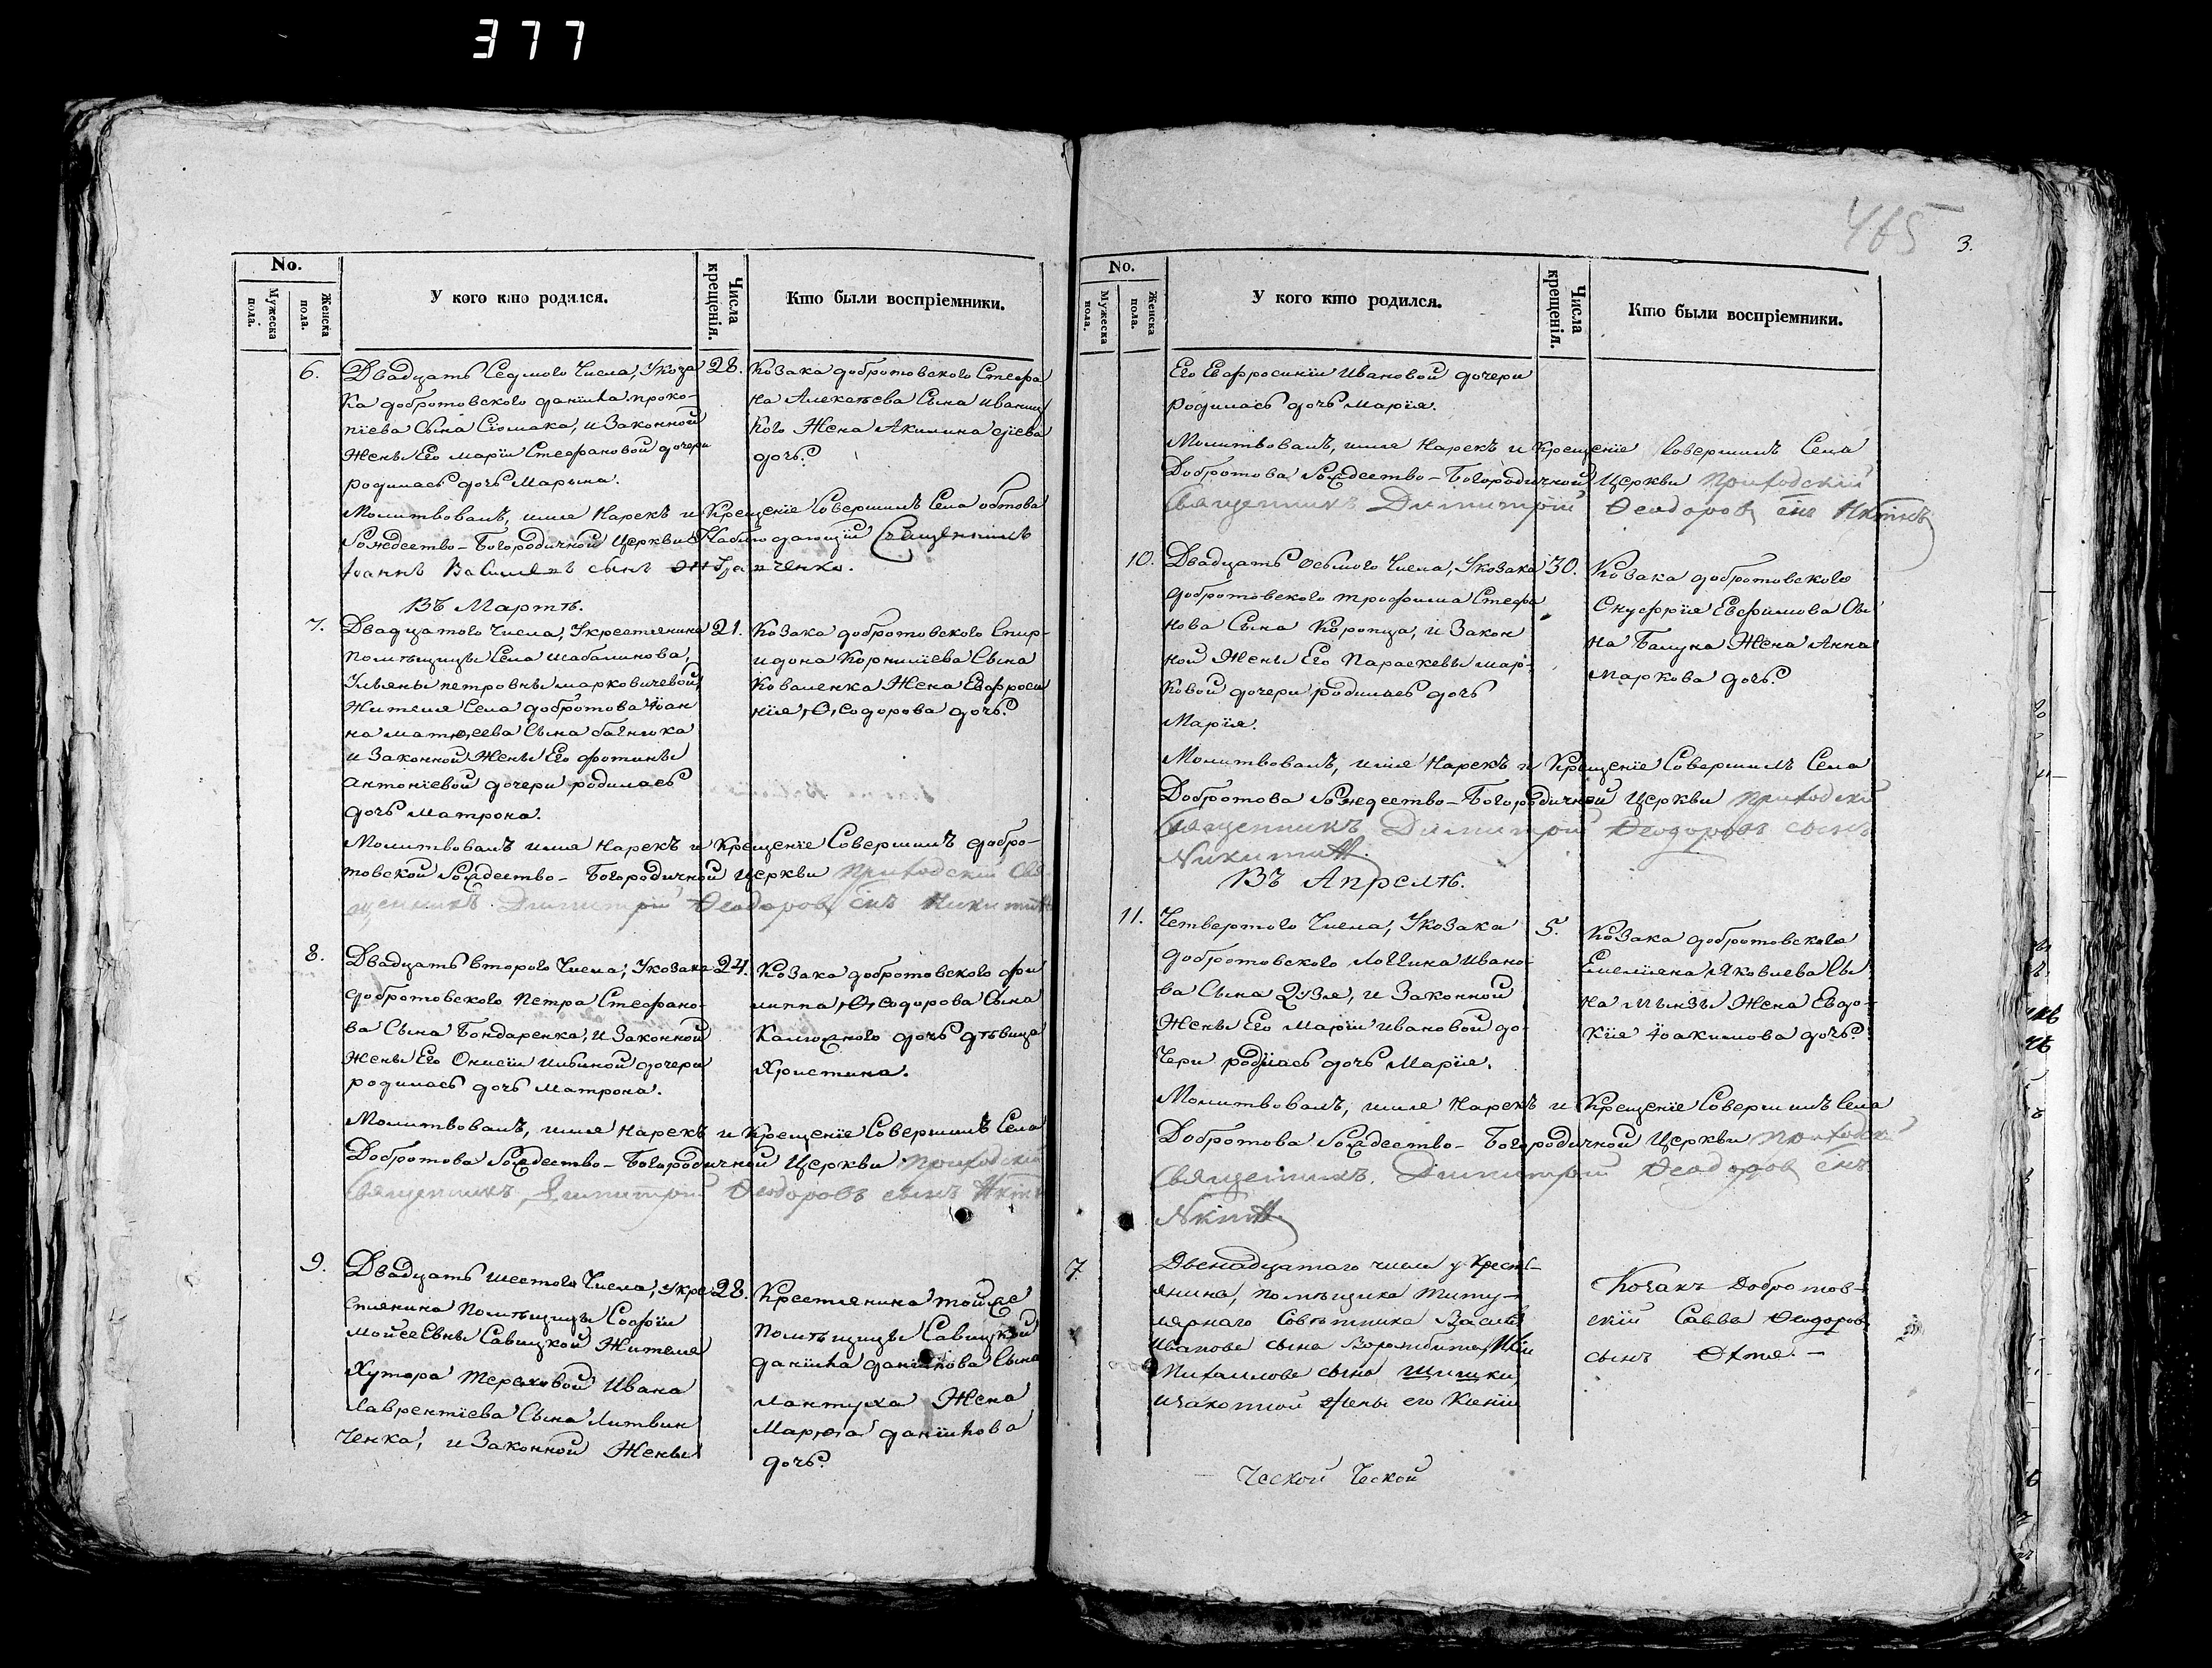 377
465
3.
No.
Мужеска пола.
Женска пола.
У кого кто родился.
Числа крещенія.
Кто были воспріемники.
6.
Двадцать Седмого Числа, Укоза
ка добротовского даніила проко-
піева Сына Сіомака, и Законной
Жены Его маріи Стефановой дочери
родилась дочь Марына.
28.
Козака добротовского Стефа
на Алексѣева Сына иваниц
кого Жена Акилина
дочь.
Молитвовалъ, имя Нарекъ и Крещеніе Совершилъ Села
Рождество-Богородичной Церкви Наблюдающій Священникъ
Іоаннъ сынъ
Въ Мартѣ.
7.
Двадцатого Числа, Укрестянина
помѣщицы Села шабалинова,
Ульяны петровны марковичевой,
Жителя Села добротова Іоан
на матѳеева Сына
и Законной Жены Его фотины
Антоніевой дочери родилась
дочь матрона.
21.
Козака добротовского Спир-
идона Корниліева Сына
Коваленка Жена Евфроси
нія, Ѳеодорова дочь.
Молитвовалъ имя Нарекъ и Крещеніе Совершилъ добро-
товской Рождество-Богородичной Церкви Приходскій Свя
щенникъ Димитрій Ѳеодоровъ снъ Никитинъ
8.
Двадцать второго Числа, Укозака
добротовского Петра Стефано-
ва Сына Бондаренка, и Законной
Жены Его Онисіи Ильиной дочери
родилась дочь Матрона.
24.
Козака добротовского фи
липпа, Ѳеодорова Сына
дочь дѣвица
Христина.
Молитвовалъ, имя Нарекъ и Крещеніе Совершилъ Села
Добротова Рождество-Богородичной Церкви Приходскій
Священникъ Димитрій Ѳеодоровъ сынъ
9.
Двадцать шестого Числа, укре
стянина Помѣщицы Софіи
Мойсеевны Савицкой Жителя
Хутора Тереховой Ивана
Лаврентіева Сына Литвин
ченка, и Законной Жены
28.
Крестянина тойже
Помѣщицы Савицкой
даніила даніилова Сына
лантуха Жена
даніилова
дочь.
No.
Мужеска пола.
Женска пола.
У кого кто родился.
Числа крещенія.
Кто были воспріемники.
Его Евфросиніи Ивановой дочери
родилась дочь Марія.
Молитвовалъ, имя Нарекъ и Крещеніе Совершилъ Села
Добротова Рождество-Богородичной Церкви Приходскій
Священникъ Димитрій Ѳеодоровъ снъ
10.
Двадцать осьмого Числа, Укозака
добротовского трофима Стефа
нова Сына Коропца, и Закон
ной Жены Его Параскевы мар-
ковой дочери родилась дочь
Марія.
30.
Козака добротовского
Онуфрія Евфимова Сы
на Балуна Жена Анна
маркова дочь.
Молитвовалъ, имя Нарекъ и Крещеніе Совершилъ Села
Добротова Рождество-Богородичной Церкви Приходскій
Священникъ Димитрій Ѳеодоровъ сынъ
Никитин.
Въ Апрелѣ.
11.
Четвертого Числа, Укозака
добротовского Логгина Ивано
ва Сына и Законной
Жены Его Маріи ивановой до-
чери родилась дочь Марія.
5.
Козака добротовского
Емеліяна, Яковлева Сы
на Жена Евдо-
кія Іоакимова дочь.
Молитвовалъ, имя Нарекъ и Крещеніе Совершилъ Села
Добротова Рождество-Богородичной Церкви Приходскій
Священникъ Димитрій Ѳеодоровъ снъ
7.
Двенадцатаго числа у Кресть-
янина, помѣщика титу-
лярнаго Совѣтника Василія
Иванова сына
Михаилова сына Щишки,
изаконной жены его Ксеніи
Козакъ Добротов-
скій Савва Ѳеодоровъ
сынъ
ческой ческой